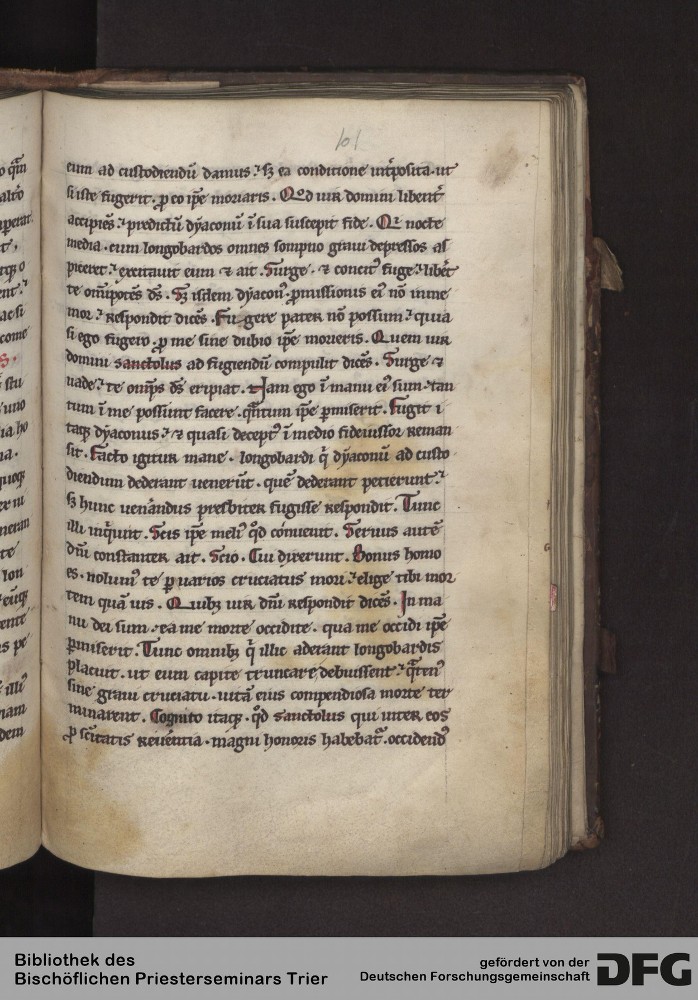 101
eum ad custodiendū damus ⁊ sꝫ ea conditione int̄posita· ut
si iste fugerit· ꝓ eo ip̄e moriaris. Qd̄ uir domini libent᷑
accipiēs· predictū dyaconū ī sua suscepit fide. Qi nocte
media· cum longobardos omnes sompno graui depressos as
piceret· excitauit eum ⁊ ait. Surge· ⁊ concit᷒ fuge· liber&
te om̄ipotēs ds̄. Sꝫ isdem dyacon᷒· ꝓmissionis ei᷒ nō inme
mor· respondit dicēs. Fugere pater nō possum· quia
si ego fugero· ꝓ me sine dubio ip̄e morieris. Quem uir
domini sanctolus ad fugiendū compulit dicēs. Surge ⁊
uade· te om̄ps ds̄ eripiat. Nam ego ī manu ei᷒ sum· tan
tum ī me possunt facere· q̄ntum ip̄e ꝑmiserit. Fugit i
taqꝫ dyaconus· ⁊ quasi decept᷒ ī medio fideiussor reman
sit. Facto igitur mane· longobardi q̄ dyaconū ad custo
diendum dederant uenerūt· quē dederant petierunt·
sꝫ hunc uenerandus presbiter fugisse respondit. Tunc
illi inquiunt. Scis ip̄e meli᷒ qd̄ conuenit. Seruus autē
dn̄i constanter ait. Scio. Cui dixerunt. Bonus homo
es· nolum᷒ te ꝑ uarios cruciatus mori· elige tibi mor
tem quā uis. Quibꝫ uir dn̄i respondit dicēs. In ma
nu dei sum· ea me morte occidite· qua me occidi ip̄e
ꝑmiserit. Tunc omnibꝫ q̄ illic aderant longobardis
placuit· ut eum capite truncare debuissent· q̄ten᷒
sine graui cruciatu· uitā eius compendiosa morte ter
minarent. Cognito itaqꝫ· qd̄ sanctolus qui inter eos
ꝓ sc̄itatis reuerentia· magni honoris habebat᷑· occidend᷒
Bibliothek des
Bischöflichen Priesterseminars Trier
gefördert von der
Deutschen Forschungsgemeinschaft
DFG